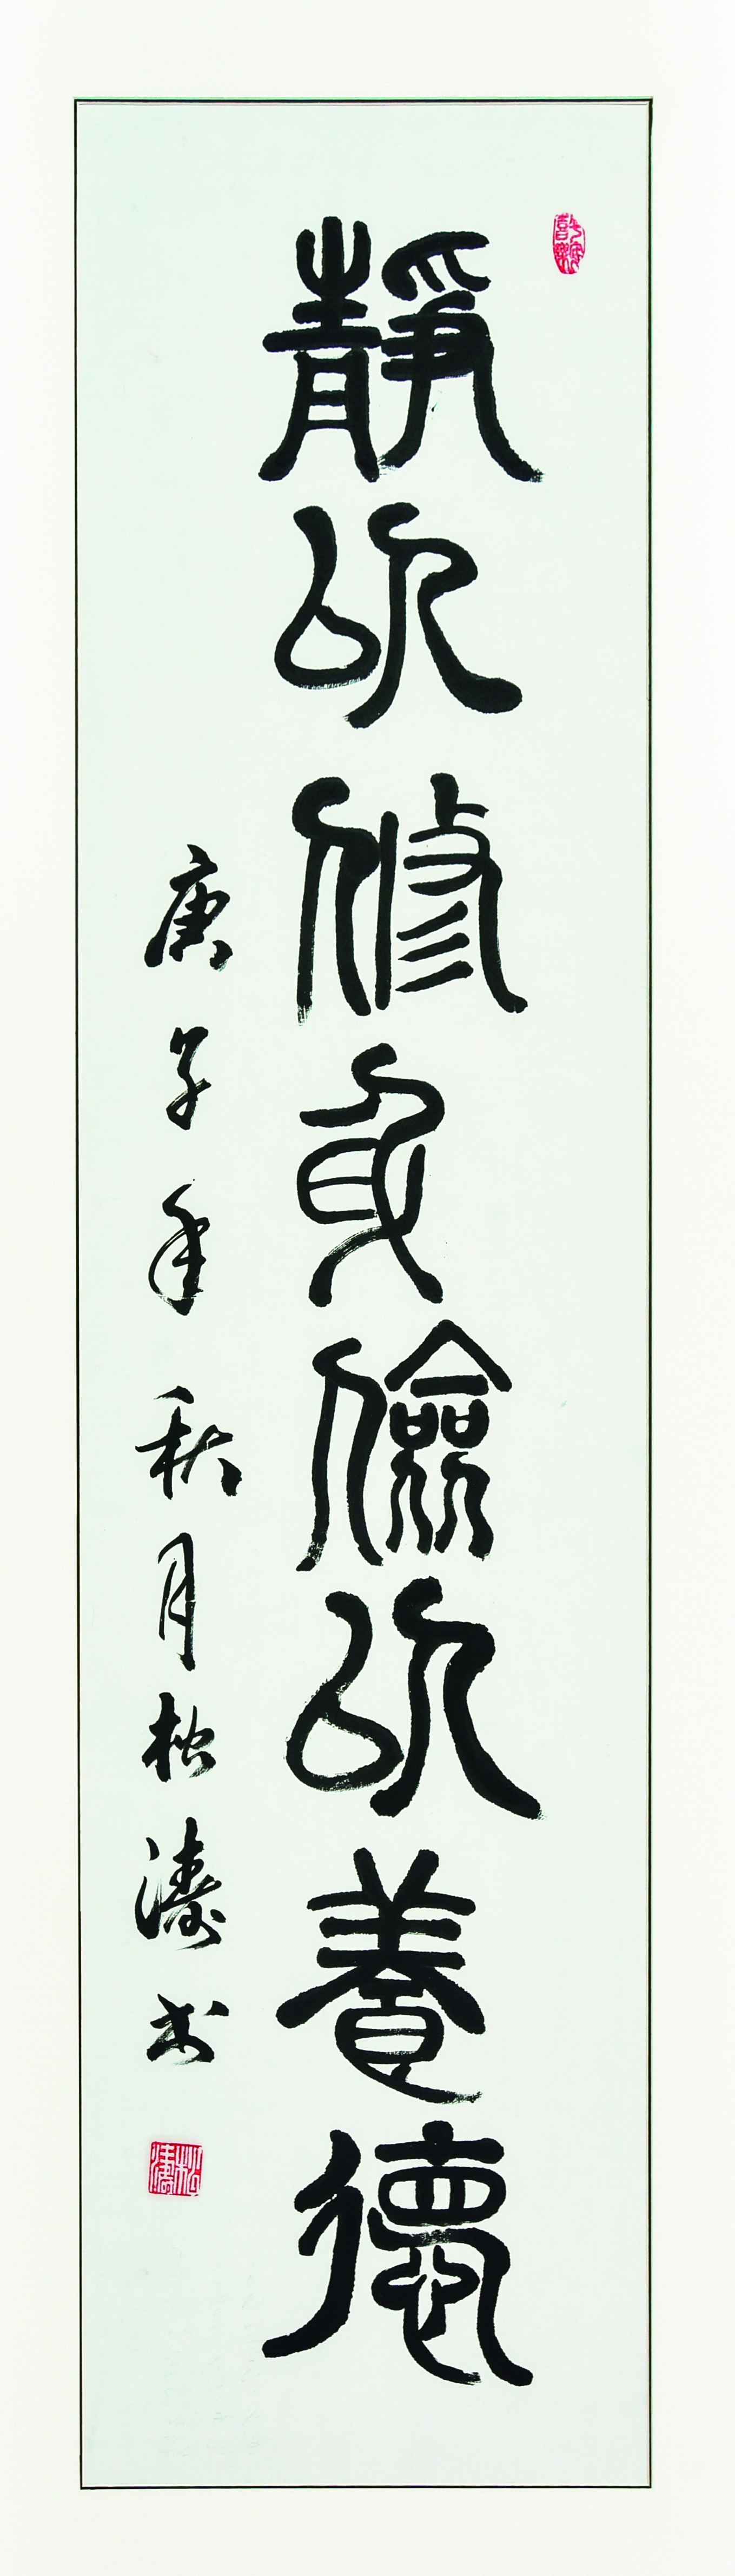 靜以修身儉以養德
庚子年秋月松濤书
松濤